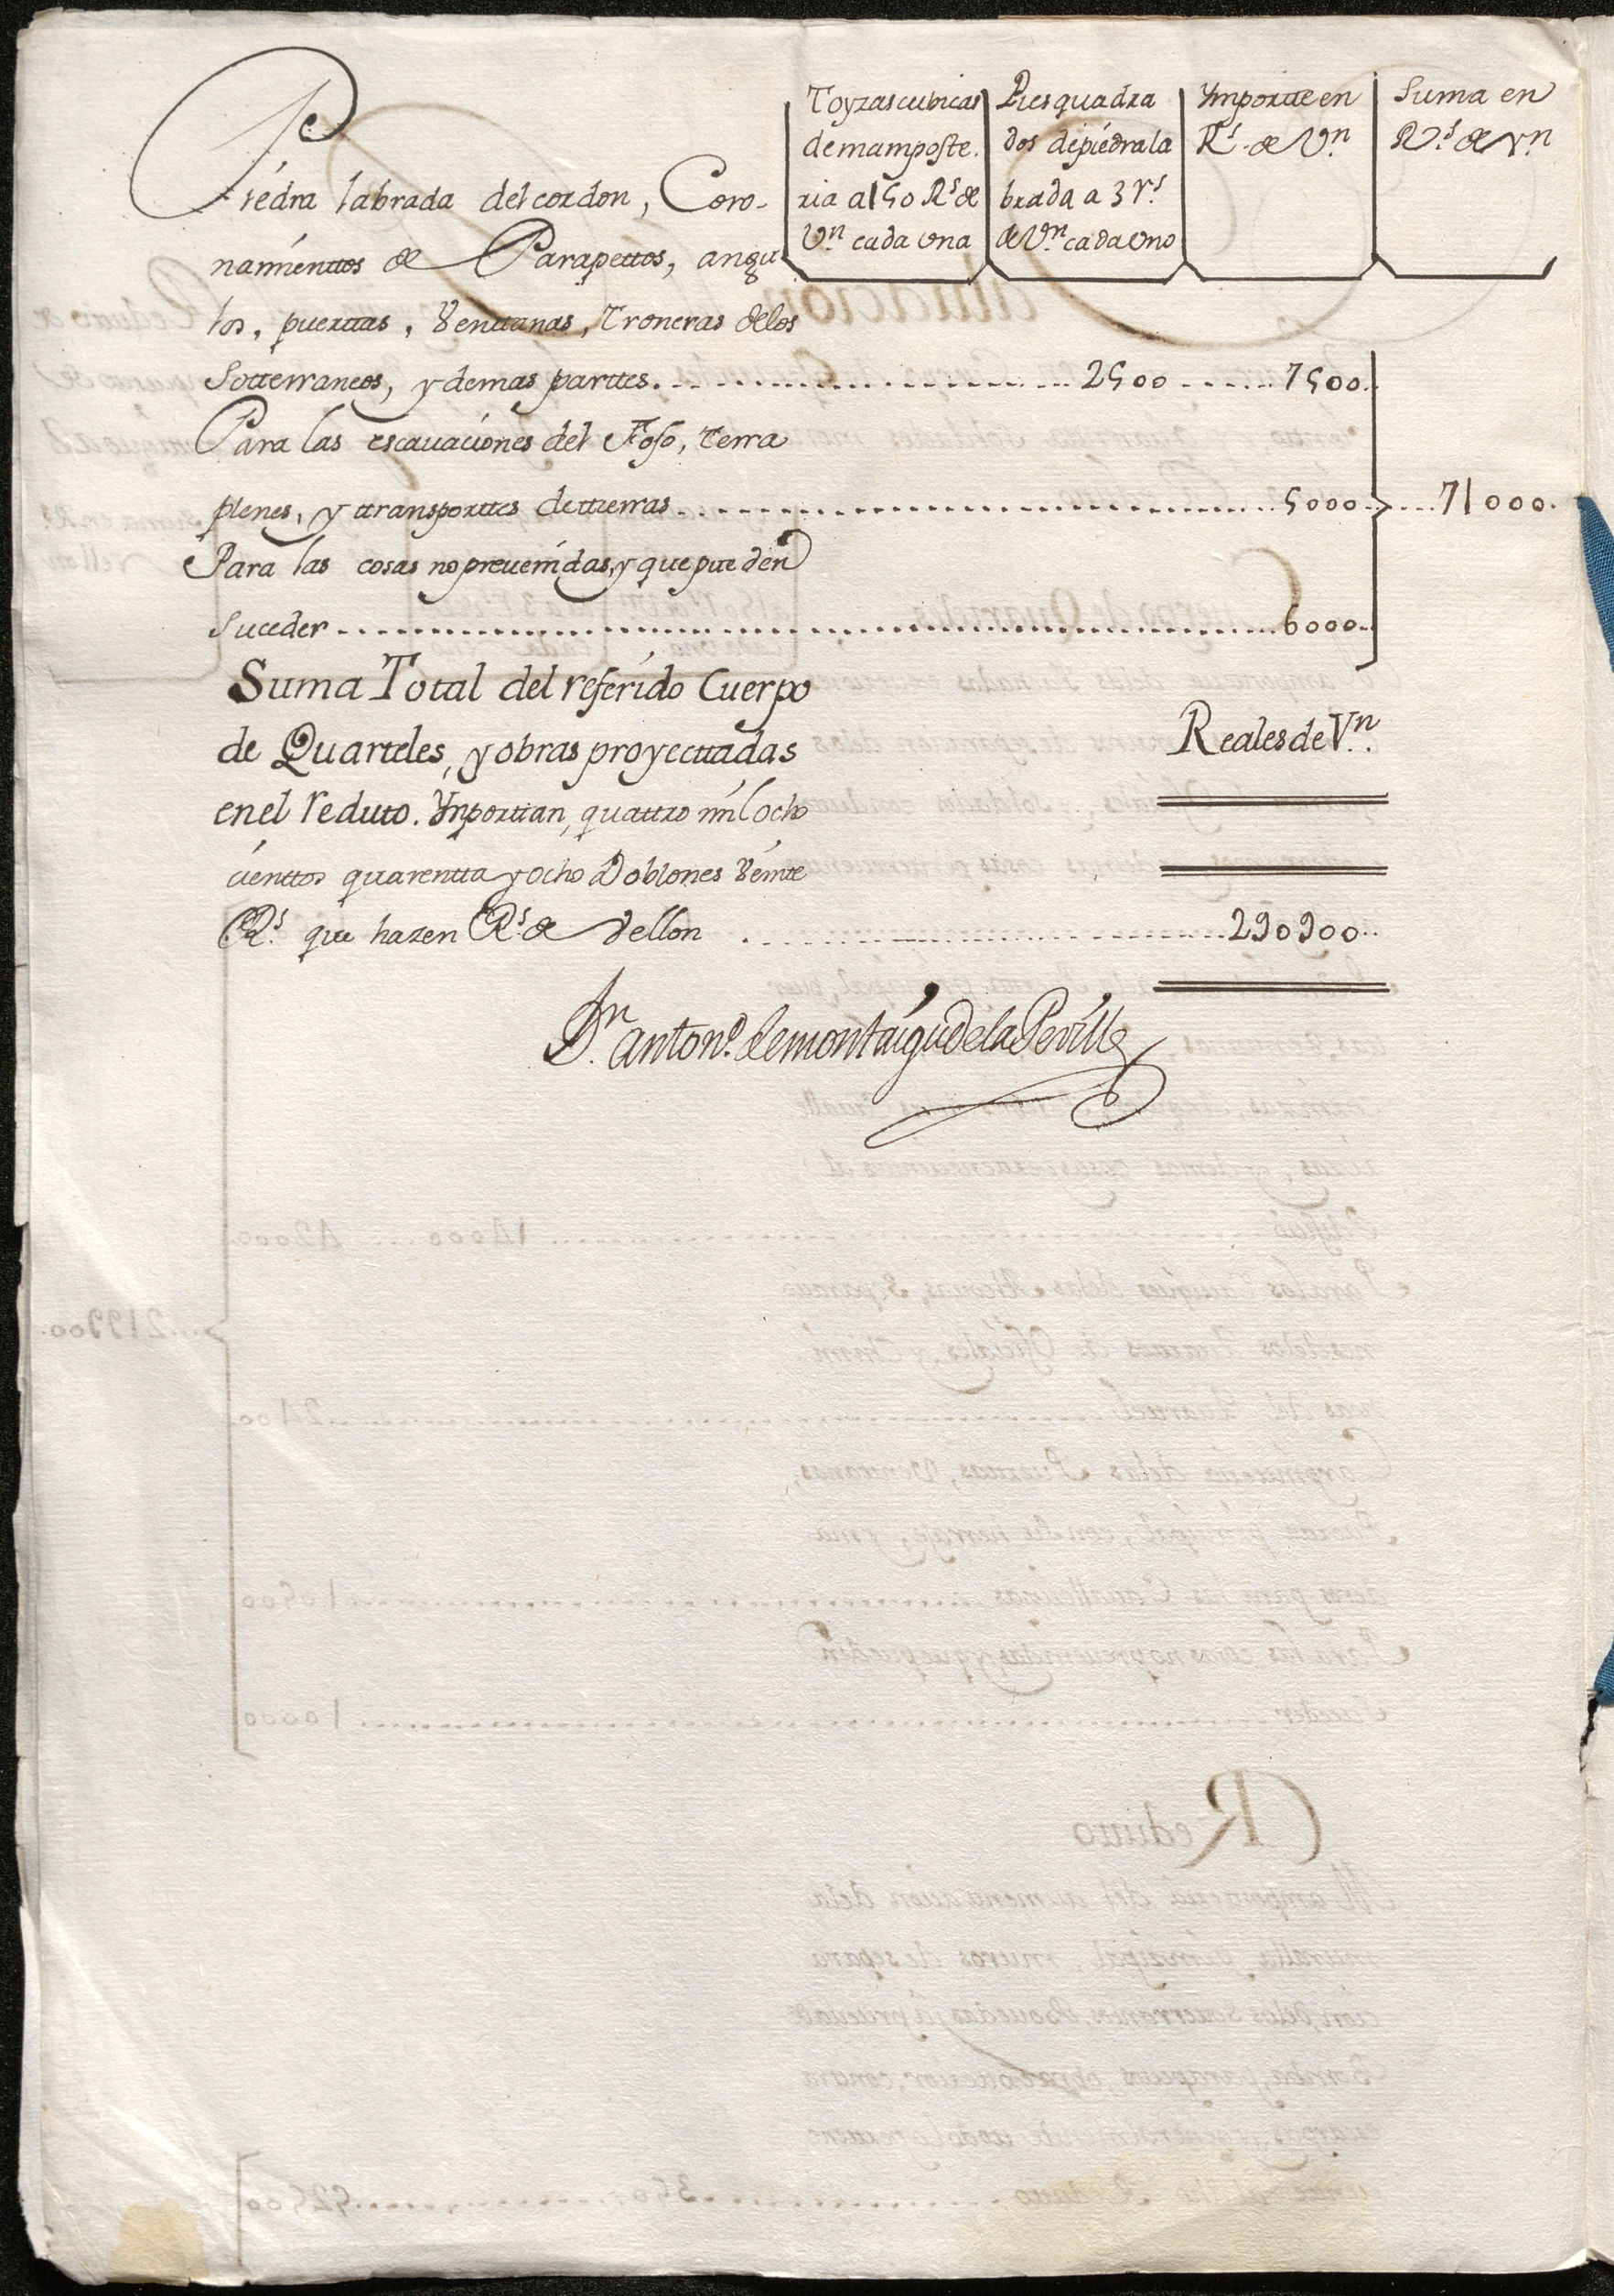 Toyzas cubicas
de mamposte.
ria a 150 Rs de
Vn cada una
Pies quadra
dos de piédra la
brada a 3 rs
de Vn cada uno
Ymportte en
Rs de Vn
Suma en
Rs de Vn
Piédra labrada del cordon, Coro-
namienttos de Parapettos, angu
los, puerttas, Venttanas, Troneras de los
Sotterraneos, y demas parttes. 2500 7500.
Para las escavaciones del Foso, Terra
plenes, y ttransporttes de ttierras 5000 71000.
Para las cosas no prevenidas, y que pueden
Suceder 6000
Suma Total del referido Cuerpo
de Quarteles, y obras proyecttadas
en el reduto. Ymporttan, quattro mil ocho
cienttos quarentta y ocho Doblones Veintte
Rs. que hazen Rs. de Vellon 290900
Reales de Vn.
Dn. Antono. de montaigu de la Perille